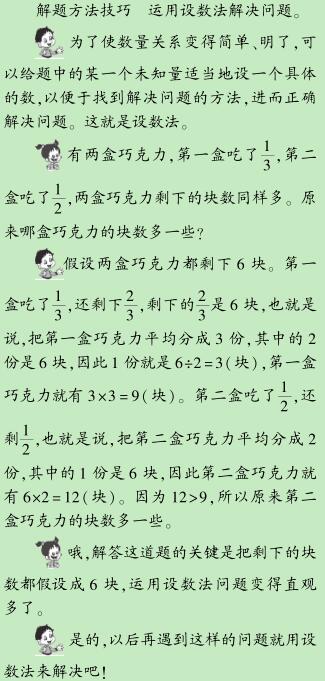 解题方法技巧　运用设数法解决问题。
为了使数量关系变得简单、明了,可
以给题中的某一个未知量适当地设一个具体
的数,以便于找到解决问题的方法,进而正确
解决问题。这就是设数法。
有两盒巧克力,第一盒吃了1/3,第二
盒吃了1/2,两盒巧克力剩下的块数同样多。原
来哪盒巧克力的块数多一些?
假设两盒巧克力都剩下6块。第一
盒吃了1/3,还剩下2/3,剩下的2/3是6块,也就是
说,把第一盒巧克力平均分成3份,其中的2
份是6块,因此1份就是6÷2=3(块),第一盒
巧克力就有3×3=9(块)。第二盒吃了1/2,还
剩1/2,也就是说,把第二盒巧克力平均分成2
份,其中的1份是6块,因此第二盒巧克力就
有6×2=12(块)。因为12>9,所以原来第二
盒巧克力的块数多一些。
哦,解答这道题的关键是把剩下的块
数都假设成6块,运用设数法问题变得直观
多了。
是的,以后再遇到这样的问题就用设
数法来解决吧!